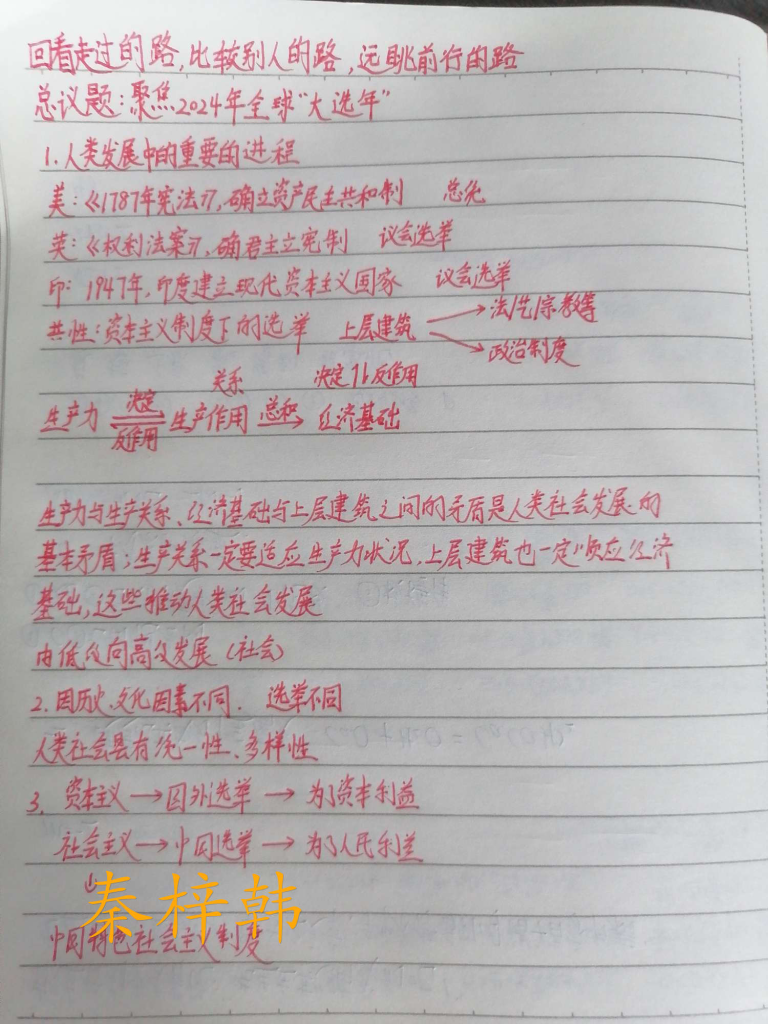 回看走过的路,比较别人的路,远眺前行的路
总议题:聚焦2024年全球“大选年”
1.人类发展中的重要的进程
美:《1787年宪法》,确立资产民主共和制 总统
英:《权利法案》,确君主立宪制 议会选举
印:1947年,印度建立现代资本主义国家 议会选举
共性:资本主义制度下的选举 上层建筑 → 法律宗教等
→ 政治制度
关系 决定 反作用
生产力 决定 反作用 生产作用 总和→ 经济基础
生产力与生产关系、经济基础与上层建筑之间的矛盾是人类社会发展的
基本矛盾;生产关系一定要适应生产力状况,上层建筑也一定顺应经济
基础,这些推动人类社会发展
由低级向高级发展(社会)
2.因历史、文化因素不同. 选举不同
人类社会具有统一性、多样性
3. 资本主义→国外选举→为了资本利益
社会主义→中国选举→为了人民利益
秦梓韩
中国特色社会主义制度